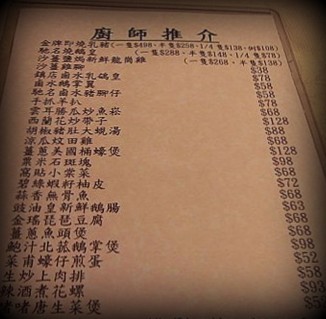 廚師推介
金牌即燒乳豬(一隻$498，半隻$258，1/4隻$138，例$108)
馳名燒鵝皇 (一隻$288，半隻$148，1/4隻$78)
沙薑鹽焗新鮮龍崗雞 (一隻$268，半隻$138)
沙薑雞腳 $38
鎮店鹵水乳鴿皇 $78
鹵水鵝掌翼 $58
馳名鹵水豬腳仔 $58
手抓羊扒 $78
雲耳勝瓜炒魚崧 $68
西蘭花炒帶子 $128
胡椒豬肚大蜆湯 $88
涼瓜炆田雞 $68
薑蔥美國桶蠔煲 $128
粟米石斑塊 $98
窩貼小棠菜 $68
碧綠蝦籽柚皮 $72
蒜香無骨魚 $68
豉油皇新鮮鵝腸 $63
金瑤琵琶豆腐 $68
薑蔥魚頭煲 $68
鮑汁北菇鵝掌煲 $98
菜甫蠔仔煎蛋 $52
生炒上肉排 $58
辣酒煮花螺 $93
啫啫唐生菜煲 $5